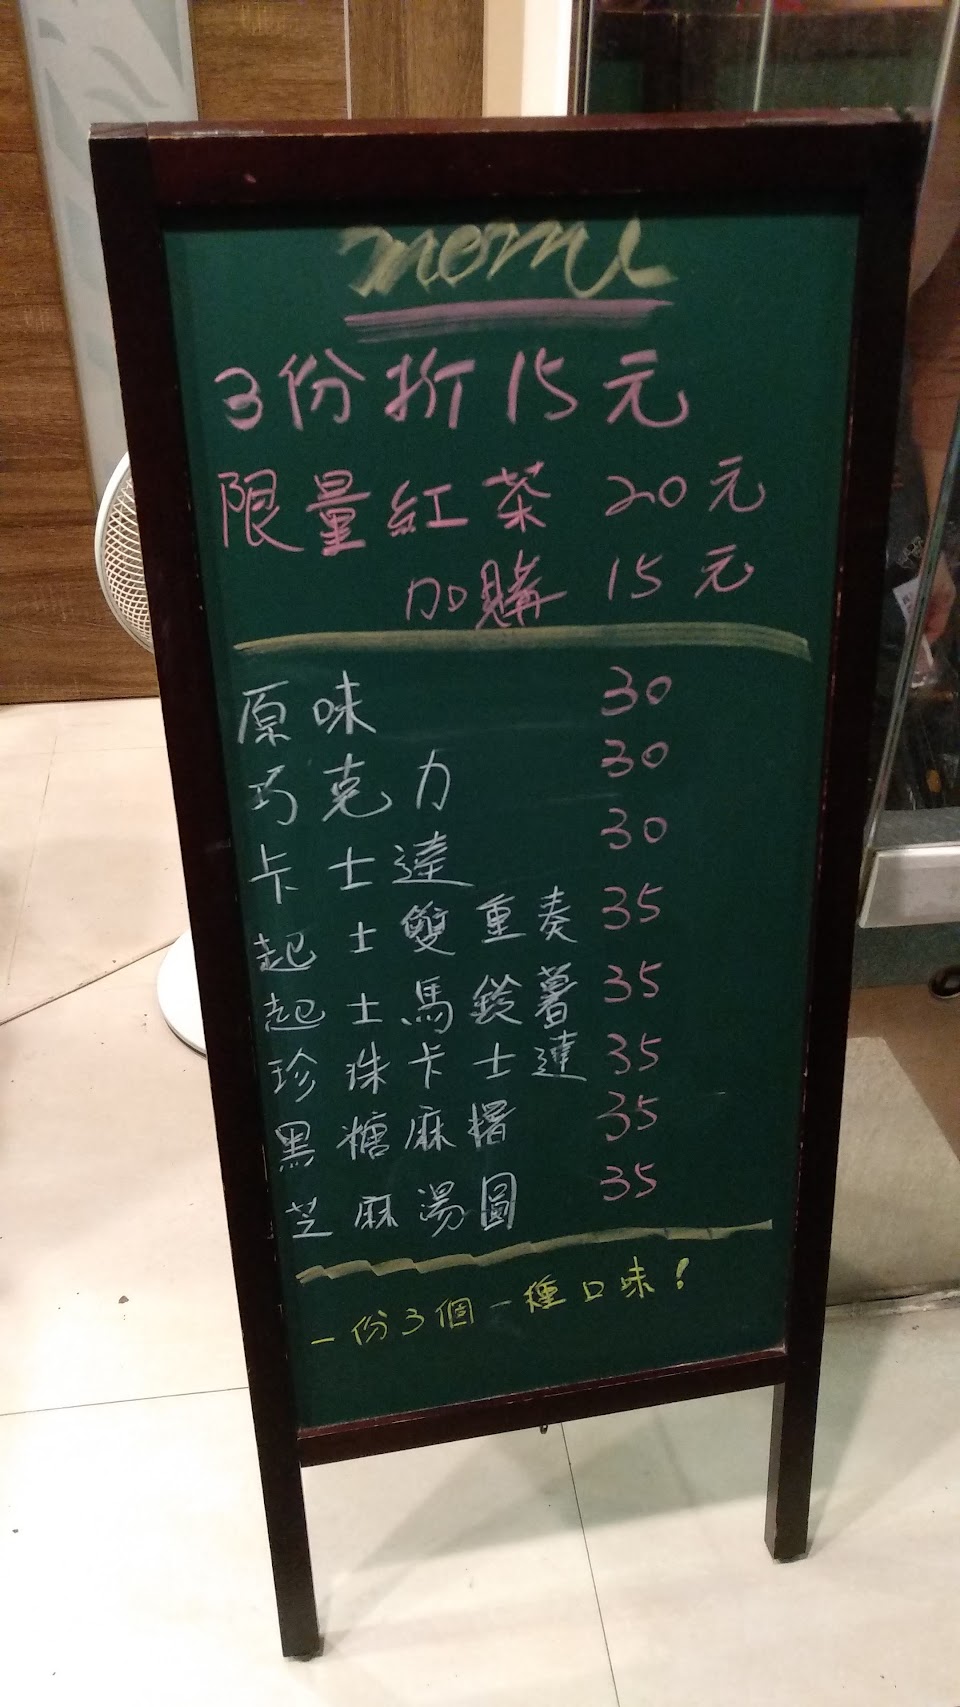 menu
3份折15元
限量紅茶 20元
加購 15元
原味 30
巧克力 30
卡士達 30
起士雙重奏 35
起士馬鈴薯 35
珍珠卡士達 35
黑糖麻糬 35
芝麻湯圓 35
一份3個一種口味!